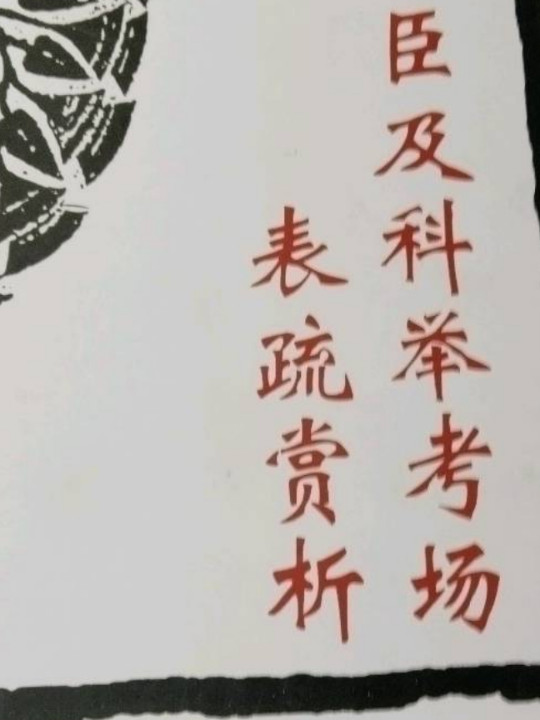 臣及科举考场
表疏赏析